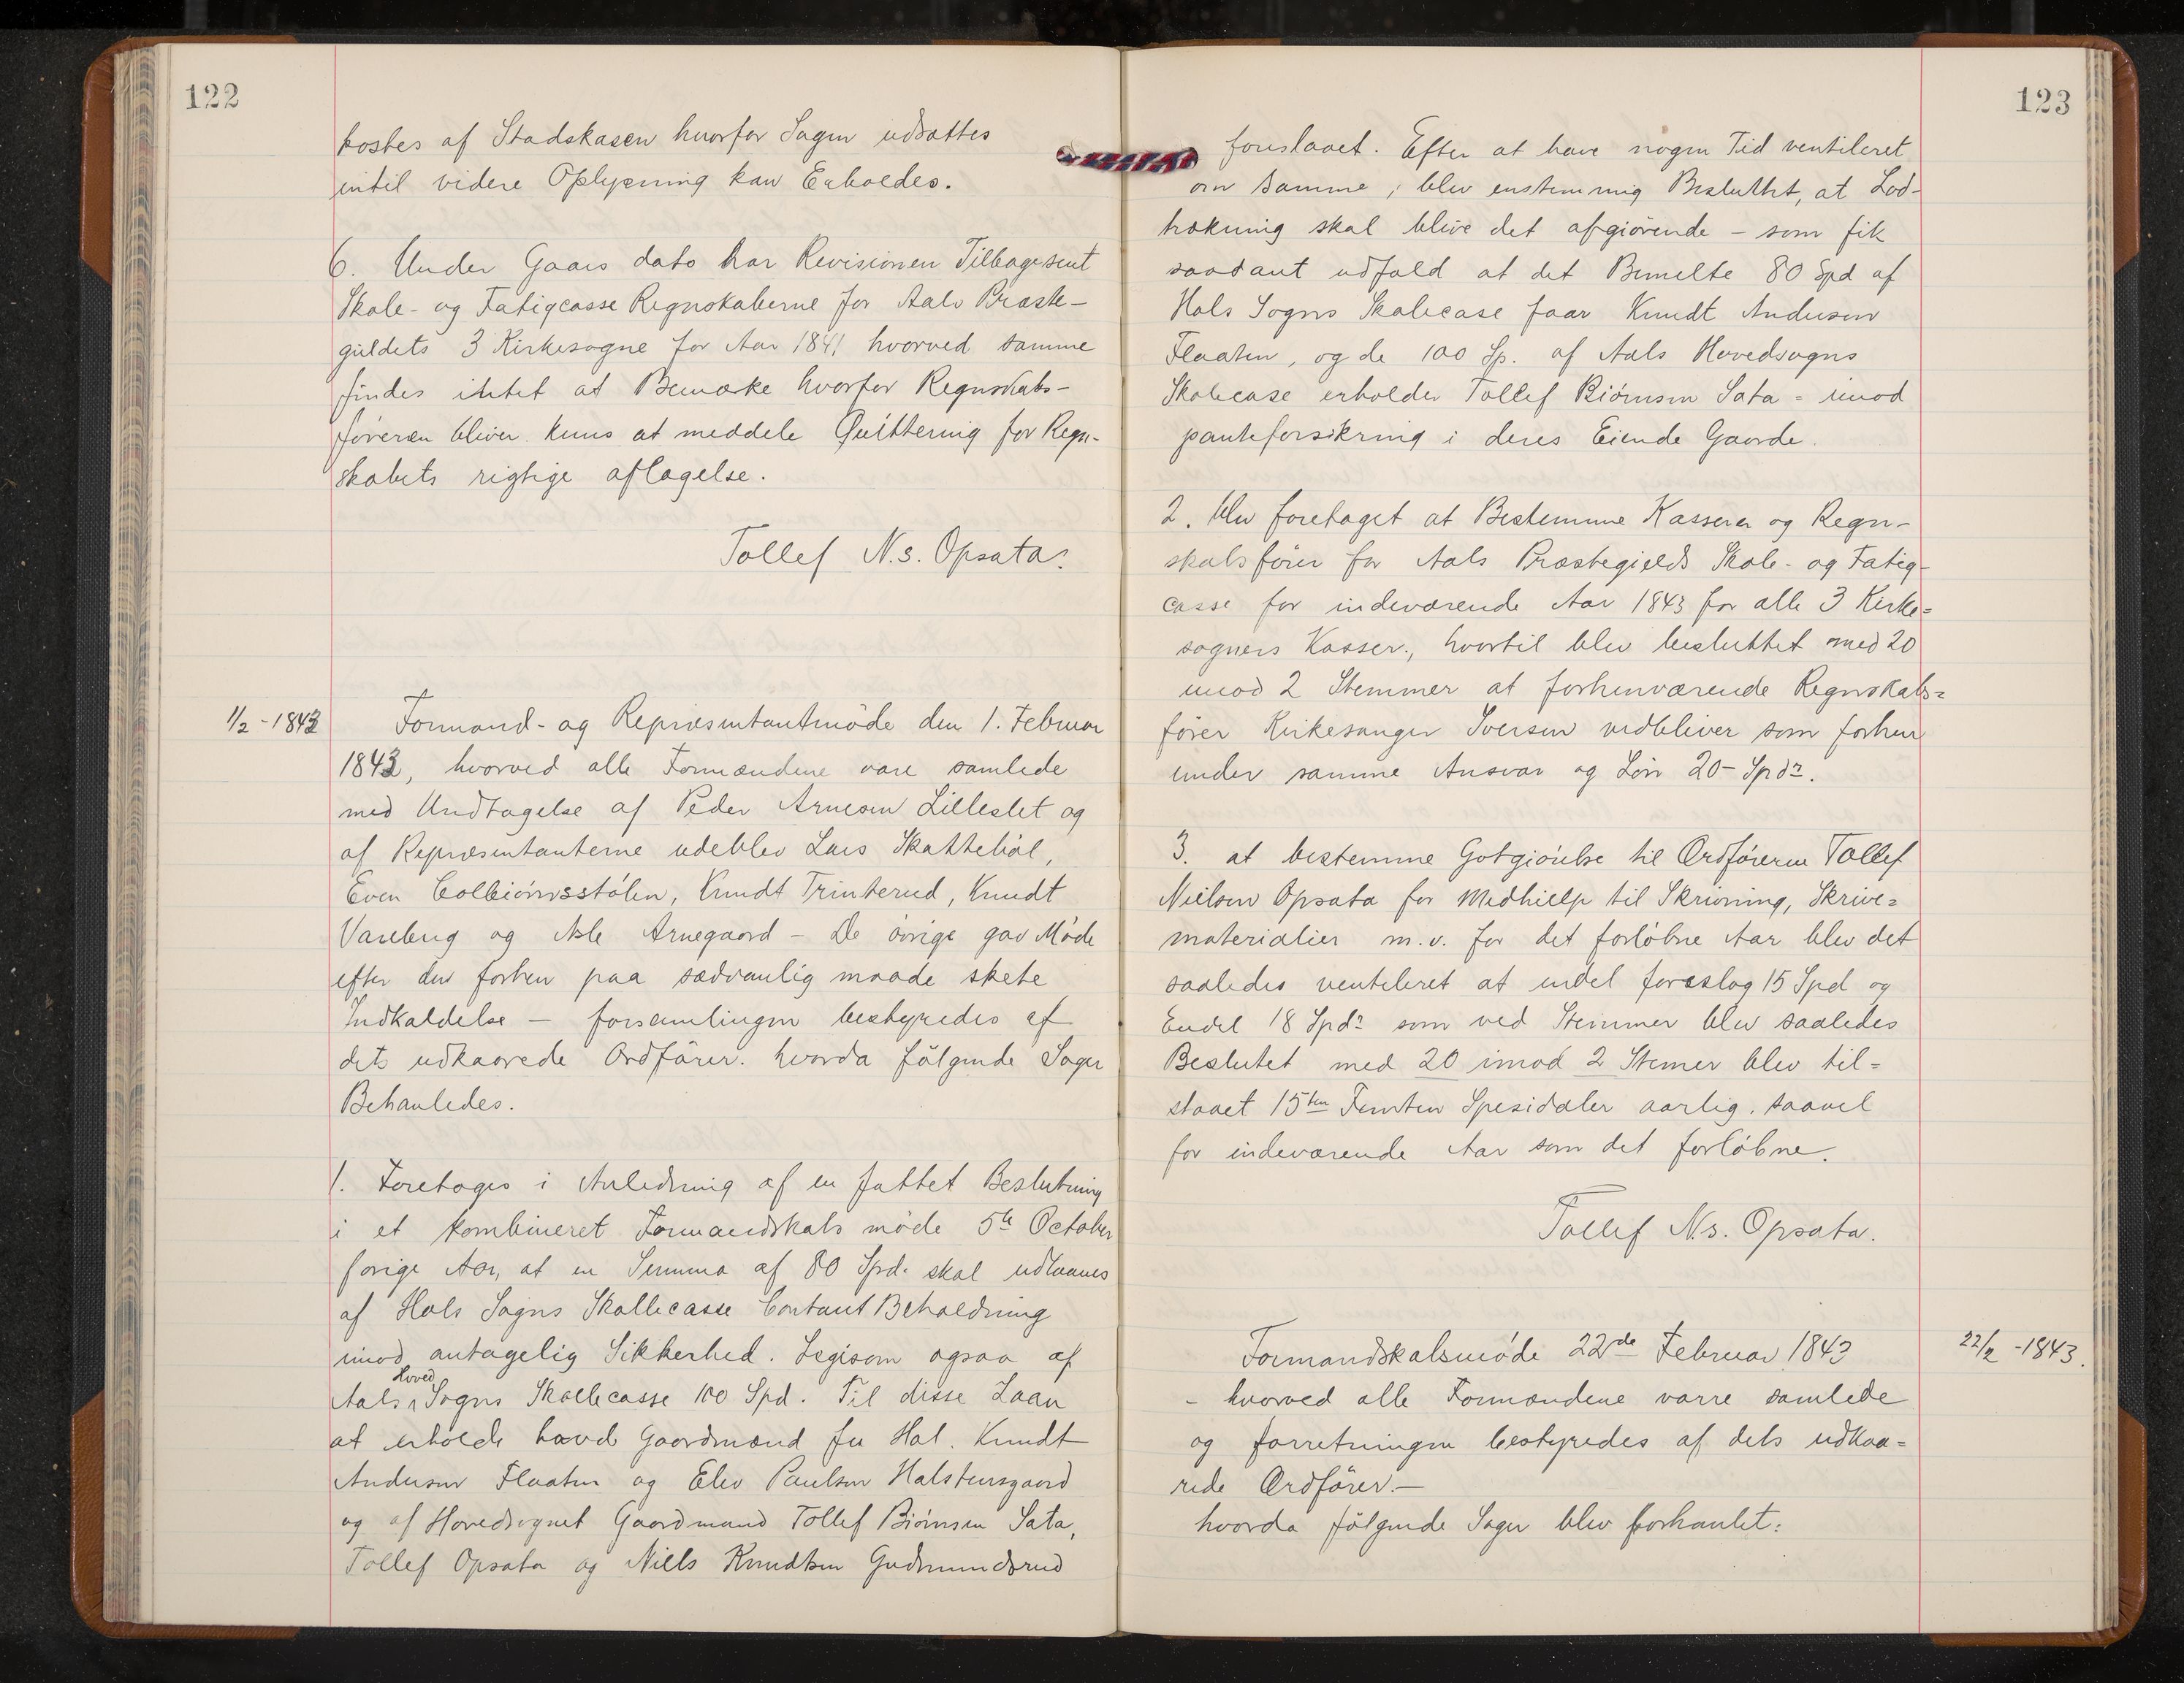 122
kostes af Stadskasen hvorfor Sagen udsattes
intil videre Oplysning kan Erholdes.
6. Under Gaars dato har Revisionen Tilbagesent
Skole- og Fatigcasse Regnskaberne for Aals Præste-
gieldets 3 Kirkesogne for Aar 1841 hvorved samme
findes intet at Bemærke hvorfor Regnskabs-
føreren bliver kuns at meddele Quitttering for Regn-
skabets rigtige aflagelse.
Tollef N.s. Opsata.
1/2 - 1843
Formand- og Repræsentantmøde den 1. Februar
1843, hvorved alle Formændene vare samlede
med Undtagelse af Peder Arnesen Lilleslet og
af Repræsentanterne udeblev Lars Skattebøl,
Even Colbiørnsstølen, Knudt Trinterud, Knudt
Vareberg og Asle Arnegaard - De øvrige gav Møde
efter den forhen paa sædvanlig maade skete
Indkaldelse - forsamlingen bestyredes af
dets udkaarede Ordfører. hvorda følgende Sager
Behanledes.
1. Foretoges i Anledning af en fattet Beslutning
i et kombineret Formandskabs møde 5te October
forige Aar, at en Summa af 80 Spd. skal udlaanes
af Hols Sogns Skollecasse Contant Beholdning
imod antagelig Sikkerhed. Legisom ogsaa af
Aals Hoved Sogns Skollecasse 100 Spd. Til disse Laan
at erholde havde Gaardmænd fra Hol. Knudt
Andersen Flaaten og Elev Paulsen Halstensgaard
og af Hovedsognet Gaardmand Tollef Biørnsen Sata,
Tollef Opsata og Niels Knudtsen Gudmundsrud
123
foreslaaet. Efter at have nogen Tid ventileret
om samme, blev enstemmig Besluttet, at Lod-
trækning skal blive det afgiørende - som fik
saadant udfald at det Bemelte 80 Spd af
Hols Sogns Skolecase faar Knudt Andersen
Flaaten, og de 100 Sp. af Aals Hovedsogns
Skolecase erholder Tollef Biørnsen Sata = imod
panteforsikring i deres Eiende Gaarde.
2. blev foretaget at Bestemme Kasserer og Regn-
skabsfører for Aals Præstegields Skole- og Fatig-
casse for indeværende Aar 1843 for alle 3 Kirke=
sogners Kasser., hvortil blev besluttet med 20
imod 2 Stemmer at forhenværende Regnskabs=
fører Kirkesanger Iversen vedbliver som forhen
under samme Ansvar og Løn 20- Spdr.
3. at bestemme Gotgiørelse til Ordføreren Tollef
Nielsen Opsata for Medhielp til Skrivning, Skrive=
materialier m.v. for det forløbne Aar blev det
saaledes ventileret at endel foreslog 15 Spd og
Endel 18 Spdr som ved Stemmer blev saaledes
Beslutet med 20 imod 2 Stemer blev til=
staaet 15ten Femten Spesidaler aarlig. saavel
for indeværende Aar som det forløbne.
Tollef N.s. Opsata.
22/2 - 1843.
Formandskabsmøde 22de Februar 1843
- hvorved alle Formændene varre samlede
og forretningen bestyredes af dets udkaa=
rede Ordfører.-
hvorda følgende Sager blev forhanlet: